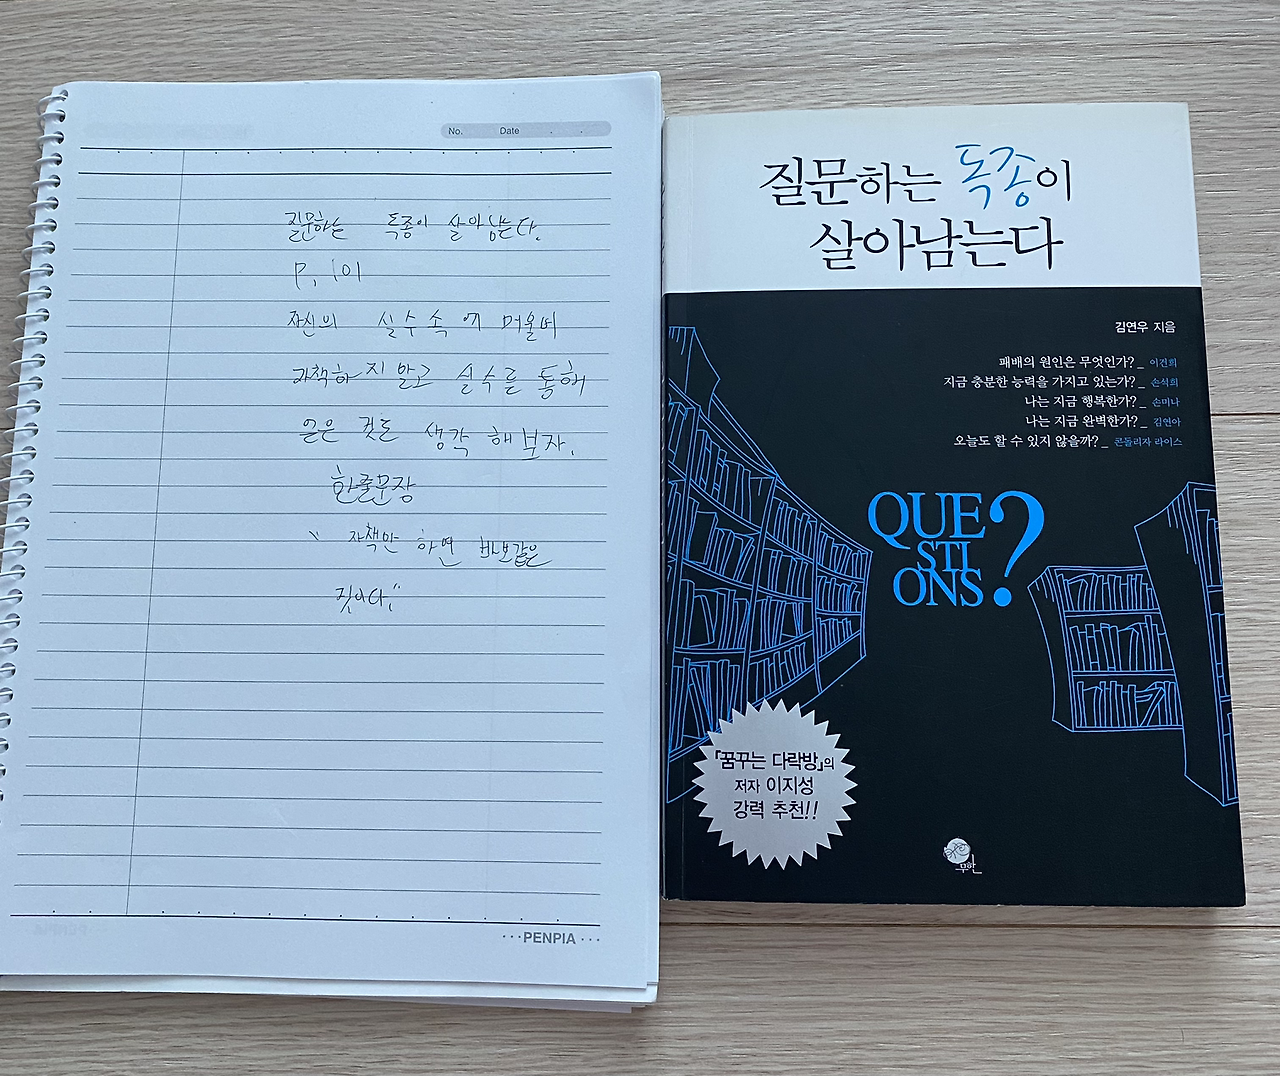 No. Date
질문하는 독종이 살아남는다.
P. 101
자신의 실수속에 머물며
자책하지 말고 실수를 통해
얻은 것도 생각 해보자.
한줄문장
" 자책만 하면 바보같은
짓이다."
···PENPIA···
질문하는 독종이
살아남는다
김연우 지음
패배의 원인은 무엇인가?_ 이건희
지금 충분한 능력을 가지고 있는가?_ 손석희
나는 지금 행복한가?_ 손미나
나는 지금 완벽한가?_ 김연아
오늘도 할 수 있지 않을까?_ 콘돌리자 라이스
QUE
STI
ONS?
「꿈꾸는 다락방」의
저자 이지성
강력 추천!!
무한